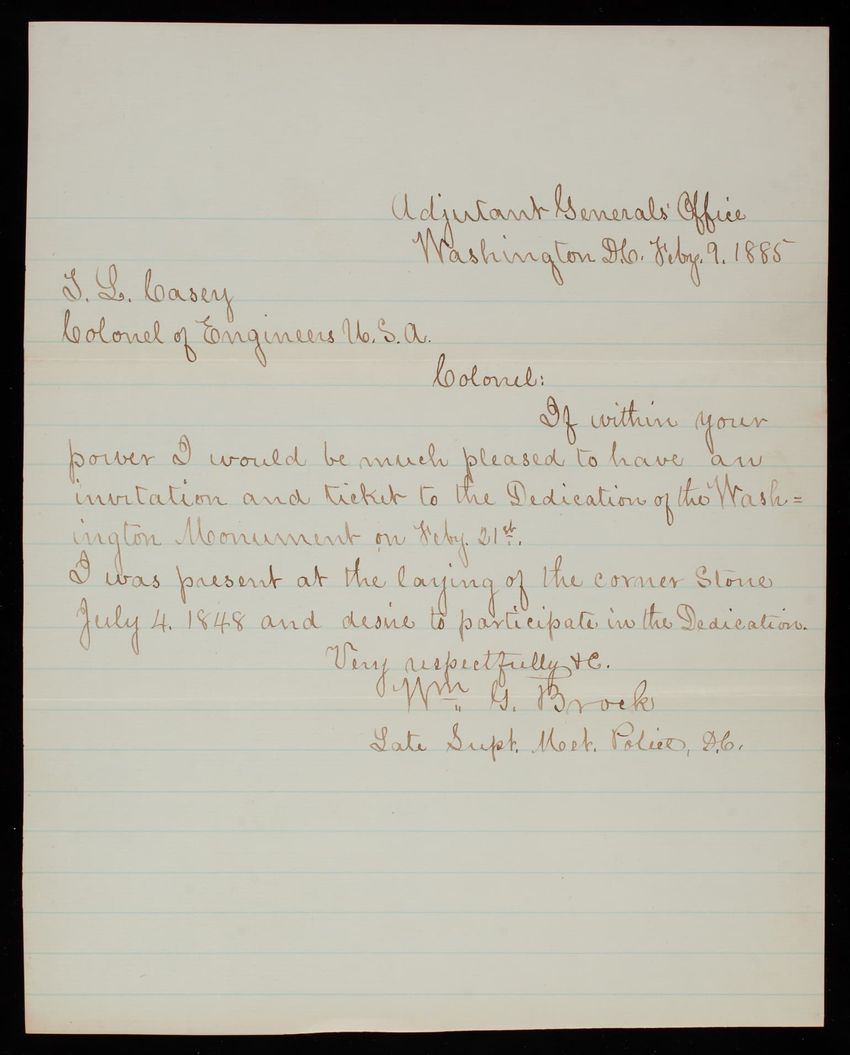 Adjutant Generals' Office
Washington D.C. Feby. 9. 1885
T. L. Casey
Colonel of Engineers U. S. A.
Colonel:
If within your
power I would be much pleased to have an
invitation and ticket to the Dedication of the Wash=
ington Monument on Feby. 21st.
I was present at the laying of the corner Stone
July 4. 1848 and desire to participate in the Dedication.
Very respectfully &c.
Wm. G. Brock
Late Supt. Met. Police, D.C.